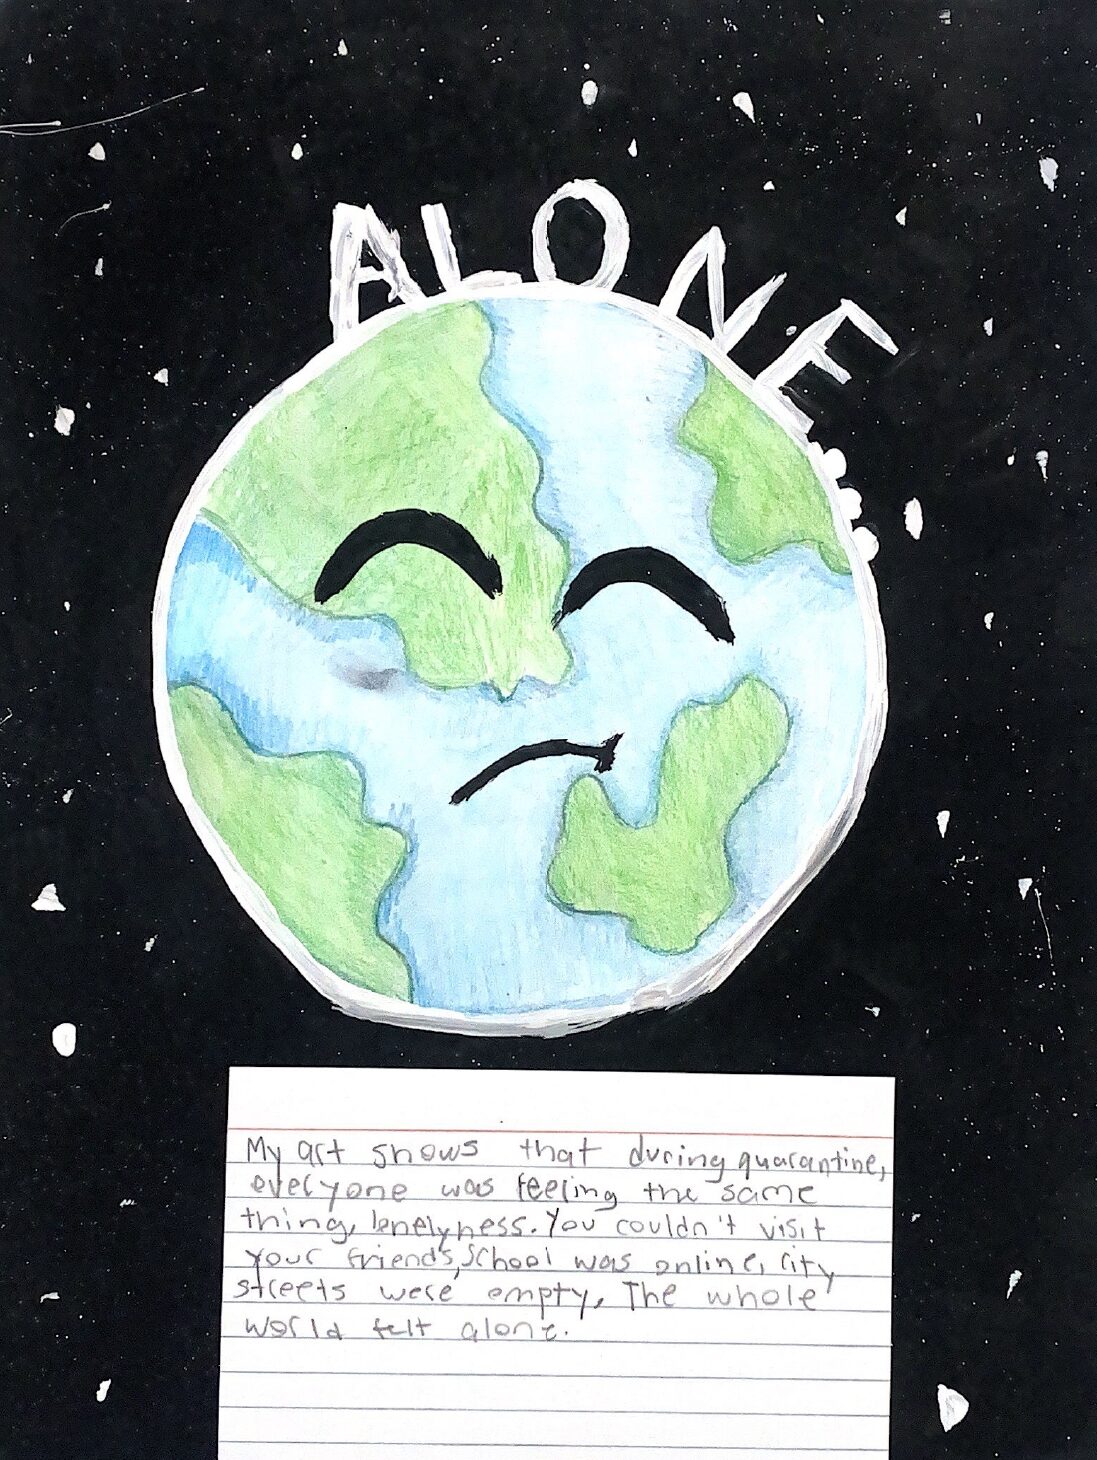 ALONE...
My art shows that during quarantine,
everyone was feeling the same
thing, lonelyness. You couldn't visit
your friends, school was online, city
streets were empty, The whole
world felt alone.